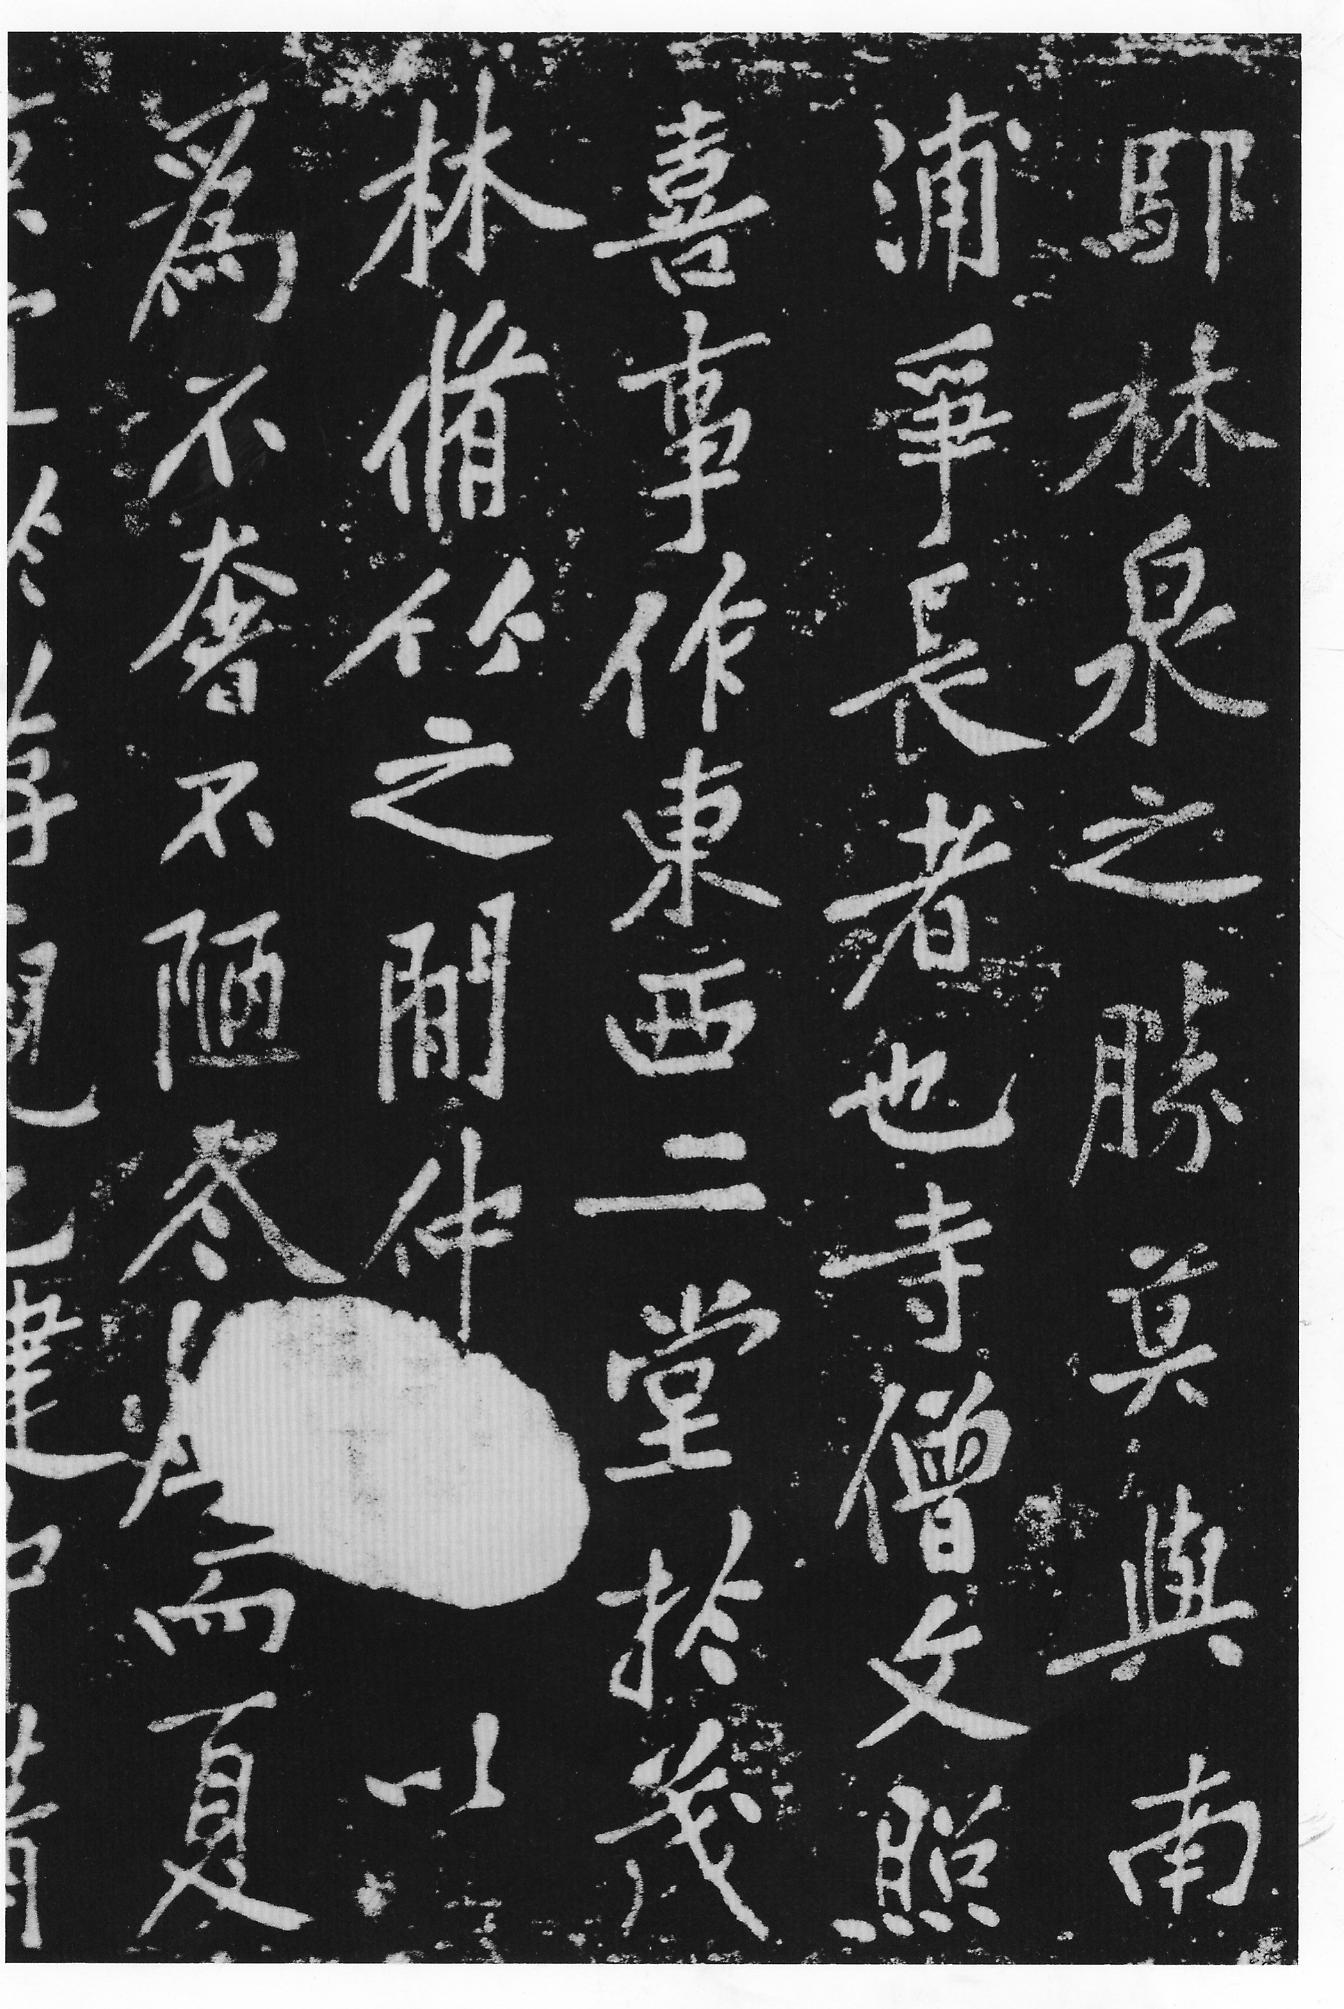 邪林泉之勝莫與南
浦爭長者也寺僧文照
喜事作東西二堂於茂
林脩竹之間仲以
為不奢不陋冬居而夏